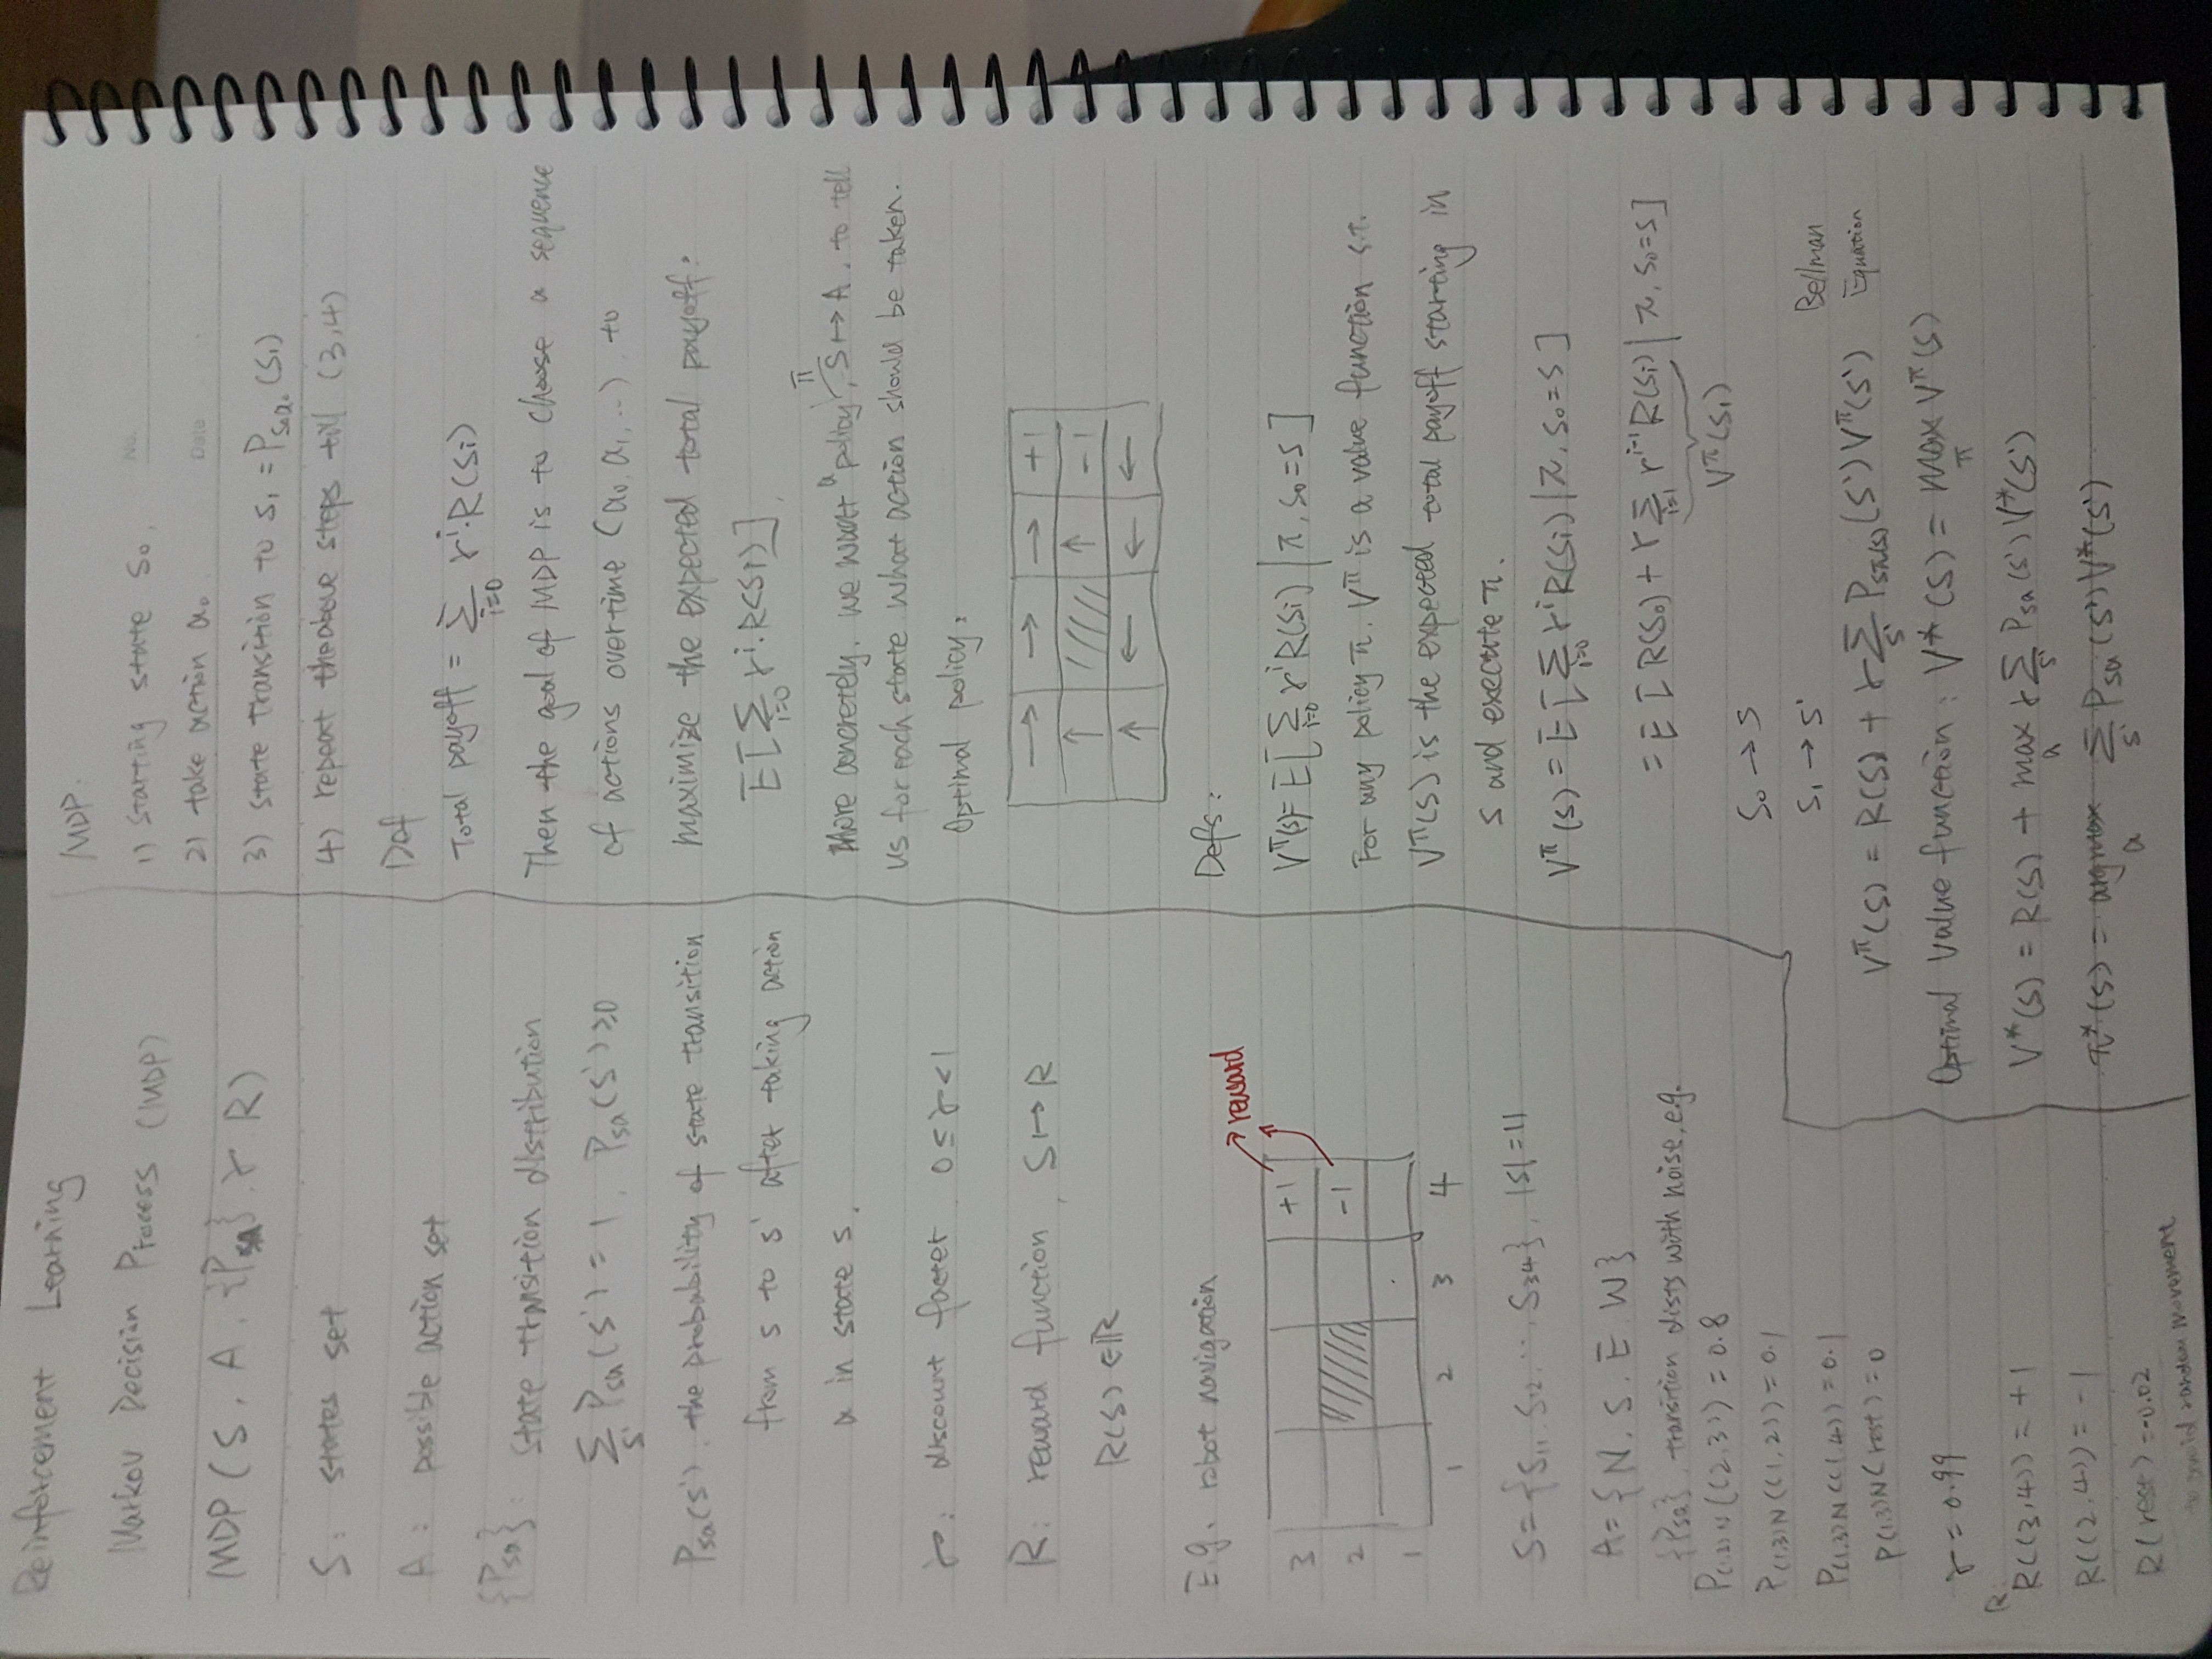 Reinforcement Learning
Markov Decision Process (MDP)
MDP (S, A, {Psa}, γ, R)
S: states set
A: possible action set
{Psa}: state transition distribution
∑s' Psa(s') = 1, Psa(s') ≥ 0
Psa(s'), the probability of state transition
from s to s' after taking action
a in state s.
γ: discount facter, 0 ≤ γ < 1
R: reward function, S ↦ R
R(s) ∈ ℝ
E.g. robot navigation
→ reward
3 +1
2 -1
1
1 2 3 4
S = {S11, S12, ..., S34}, |S| = 11
A = {N, S, E, W}
{Psa}, transition dists with noise, e.g.
P(1,3)N((2,3)) = 0.8
P(1,3)N((1,2)) = 0.1
P(1,3)N((1,4)) = 0.1
P(1,3)N(rest) = 0
γ = 0.99
R:
R((3,4)) = +1
R((2,4)) = -1
R(rest) = -0.02
to avoid random movement
MDP:
No.
1) starting state S0,
Date
2) take action a0
3) state transition to s1 = Ps0a0(s1)
4) repeat the above steps till (3,4)
Def
Total payoff = ∑i=0 γ^i·R(si)
Then the goal of MDP is to choose a sequence
of actions overtime (a0, a1, ...), to
maximize the expected total payoff:
E[∑i=0 γ^i·R(si)],
More concretely, we want a policy π, S ↦ A, to tell
us for each state what action should be taken.
Optimal policy:
→ → → +1
↑ ↑ -1
↑ ← ← ←
Defs:
V^π(s) = E[∑i=0 γ^i R(si) | π, s0 = s]
For any policy π, V^π is a value function s.t.
V^π(s) is the expected total payoff starting in
s and execute π.
V^π(s) = E[∑i=0 γ^i R(si) | π, s0 = s]
= E[R(s0) + γ ∑i=1 γ^i-1 R(si) | π, s0 = s]
V^π(s1)
s0 → s
s1 → s'
Bellman
Equation
V^π(s) = R(s) + γ ∑s' Psπ(s)(s') V^π(s')
Optimal Value function: V*(s) = max π V^π(s)
V*(s) = R(s) + max a γ ∑s' Psa(s') V*(s')
π*(s) = argmax a ∑s' Psa(s') V*(s')